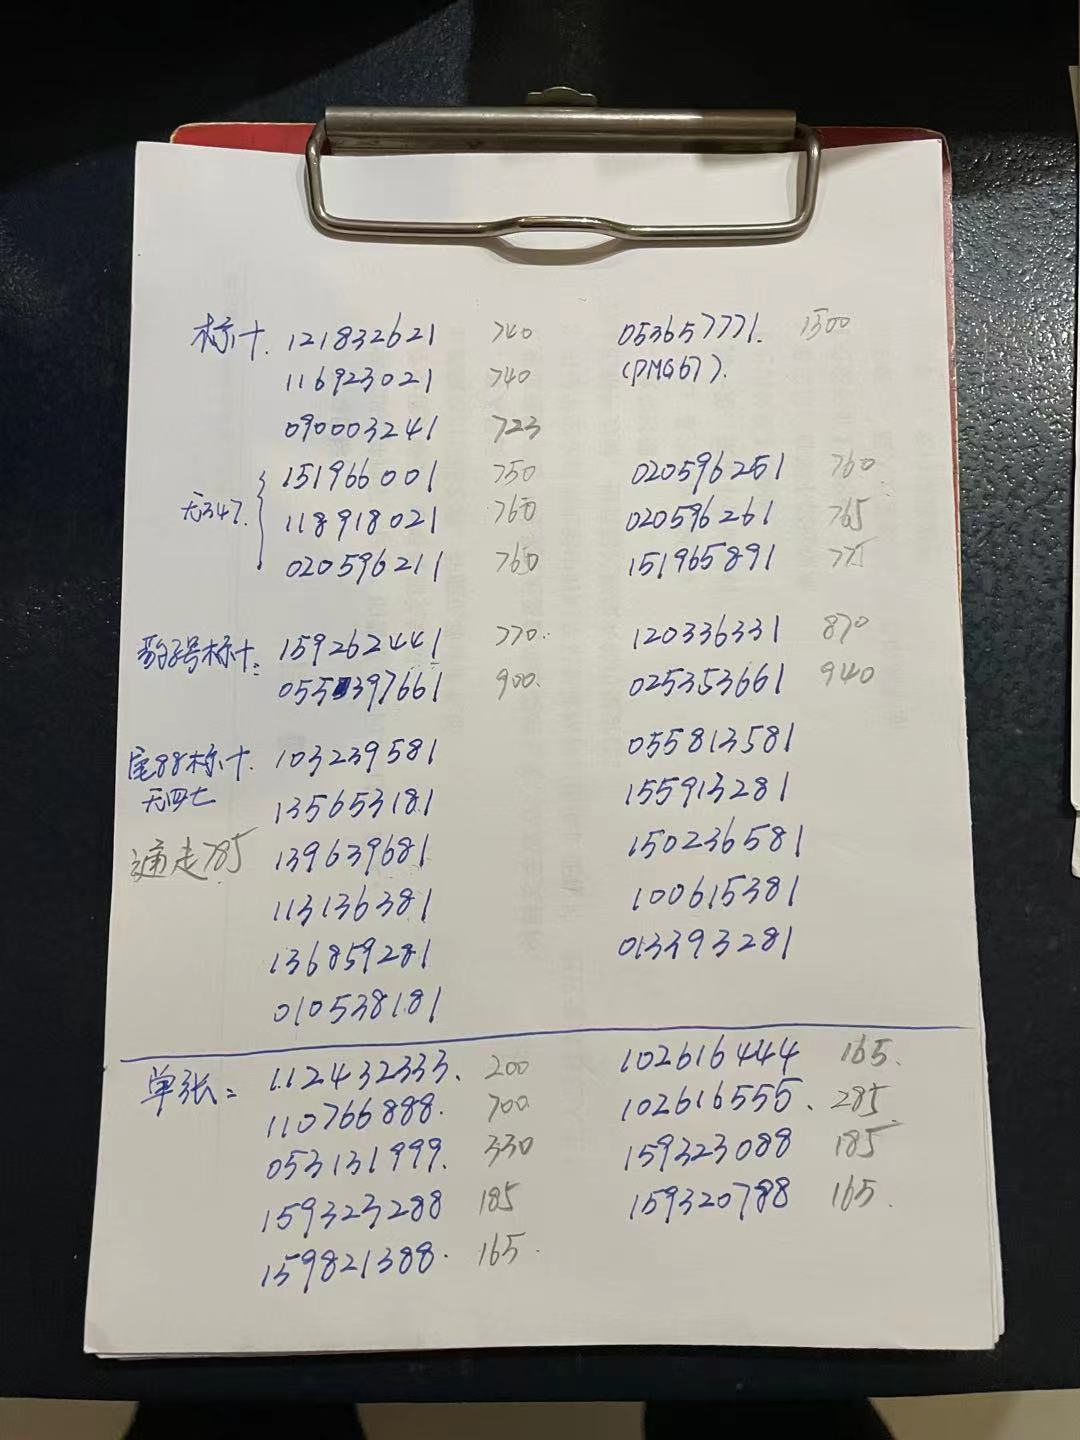 标十. 121832621 740 053657771. 1500
116923021 740 (PMG67).
090003241 723
151966001 750 020596251 760
无347. 118918021 760 020596261 765
020596211 760 151965891 775
豹子号标十: 159262441 770. 120336331 870
055397661 900. 025353661 940
尾88标十. 103239581 055813581
无四七 135653181 155913281
通走785 139639681 150236581
113136381 100615381
136859281 013393281
010538181
单张: 112432333. 200 102616444 165.
110766888. 700 102616555. 285
053131999. 330 159323088 185
159323288 185 159320788 165.
159821388. 165.